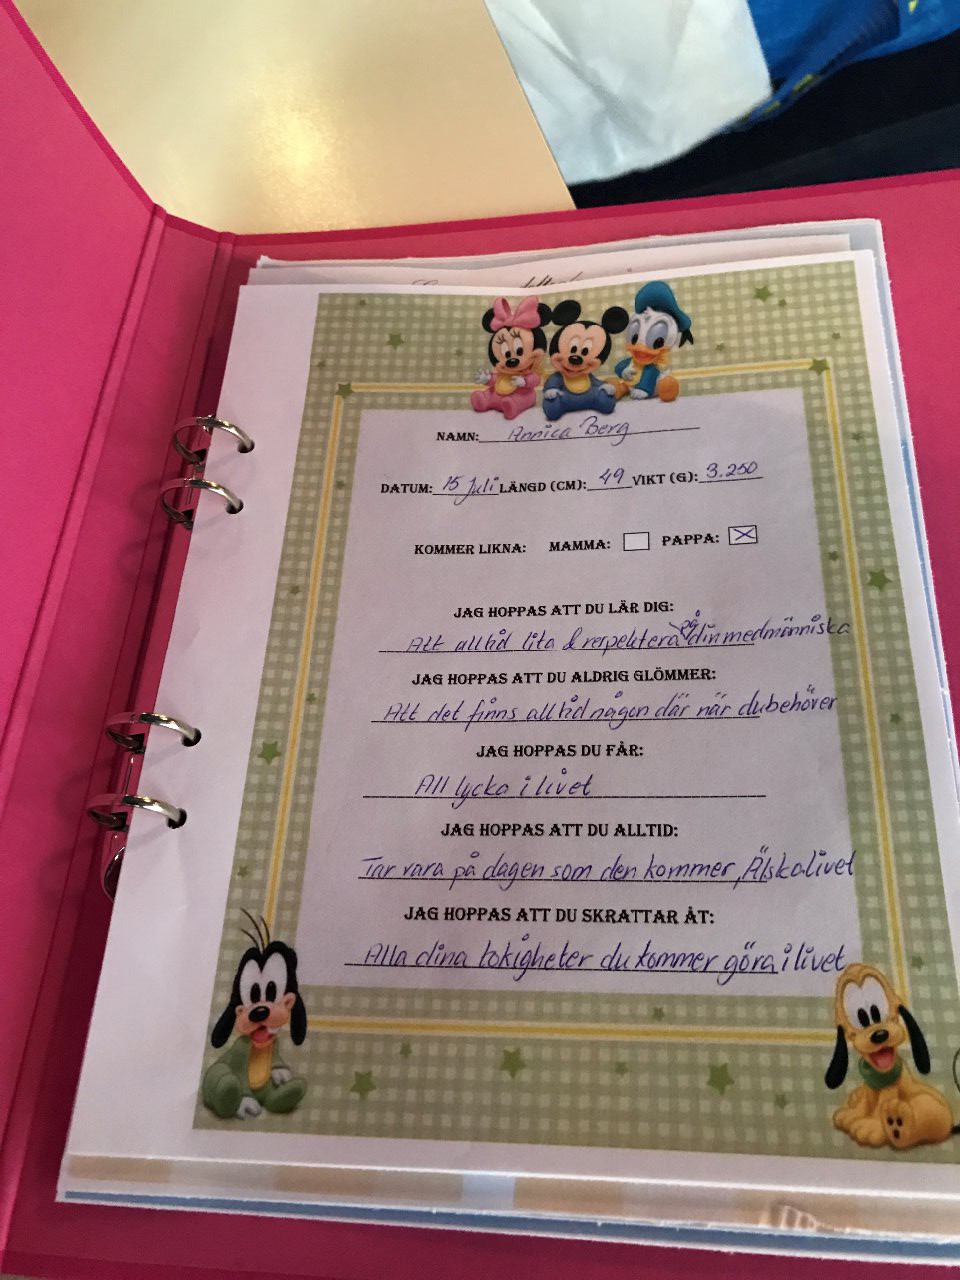 NAMN: Annica Berg
DATUM: 15 Juli LÄNGD (CM): 49 VIKT (G): 3.250
KOMMER LIKNA: MAMMA: PAPPA: X
JAG HOPPAS ATT DU LÄR DIG:
Att alltid lita & respektera på din medmänniska
JAG HOPPAS ATT DU ALDRIG GLÖMMER:
Att det finns alltid någon där när du behöver
JAG HOPPAS DU FÅR:
All lycka i livet
JAG HOPPAS ATT DU ALLTID:
Tar vara på dagen som den kommer, Älska livet
JAG HOPPAS ATT DU SKRATTAR ÅT:
Alla dina tokigheter du kommer göra i livet